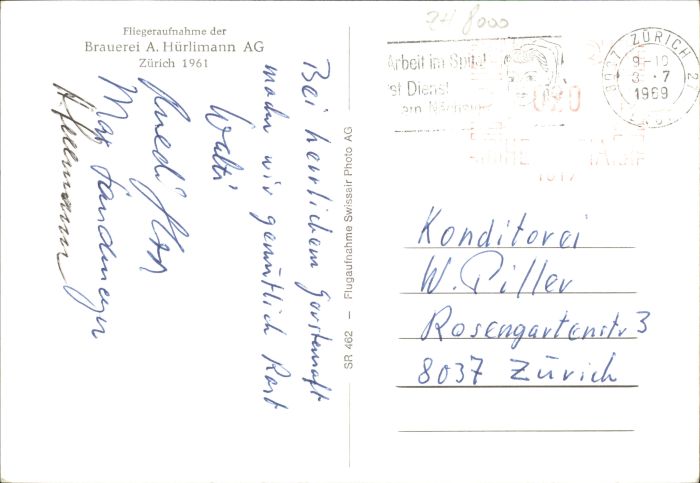 Fliegeraufnahme der
Brauerei A. Hürlimann AG
Zürich 1961
Bei herrlichem Gerstensaft
machen wir gemütlich Rast
Walti
Max
SR 462 — Flugaufnahme Swissair Photo AG
24 8000
Arbeit im Spital
ist Dienst
am Nächsten
ZÜRICH
8027
9-10
3. 7
1969
020
Konditorei
W. Piller
Rosengartenstr 3
8037 Zürich